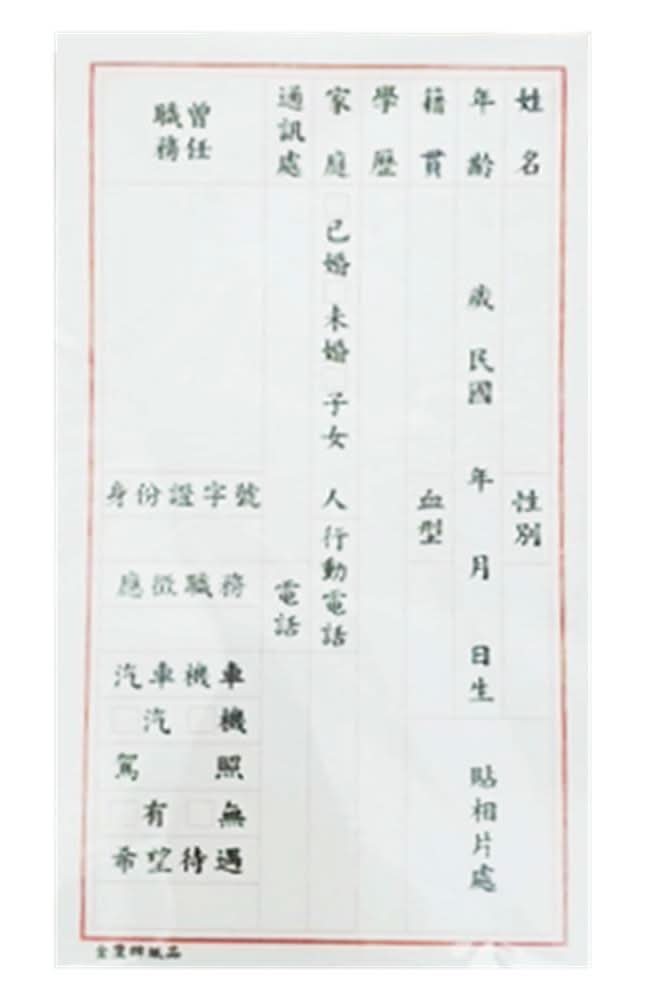 姓名 性別
年齡 歲 民國 年 月 日生
貼相片處
籍貫 血型
學歷
家庭 已婚 未婚 子女 人 行動電話
通訊處 電話
曾任
職務
身份證字號
應徵職務
汽車機車
汽 機
駕照
有 無
希望待遇